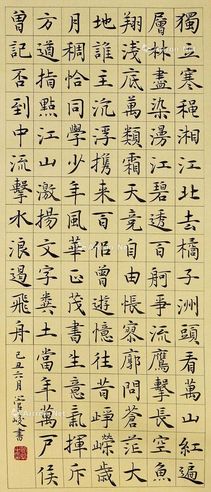 獨立寒穐湘江北去橘子洲頭看萬山紅遍
層林盡染漫江碧透百舸爭流鷹擊長空魚
翔淺底萬類霜天競自由悵寥廓問蒼茫大
地誰主沉浮携來百侶曾遊憶往昔崢嶸歲
月稠恰同學少年風華正茂書生意氣揮斥
方遒指點江山激揚文字糞土當年萬戶侯
曾記否到中流擊水浪遏飛舟
己丑六月管峻書